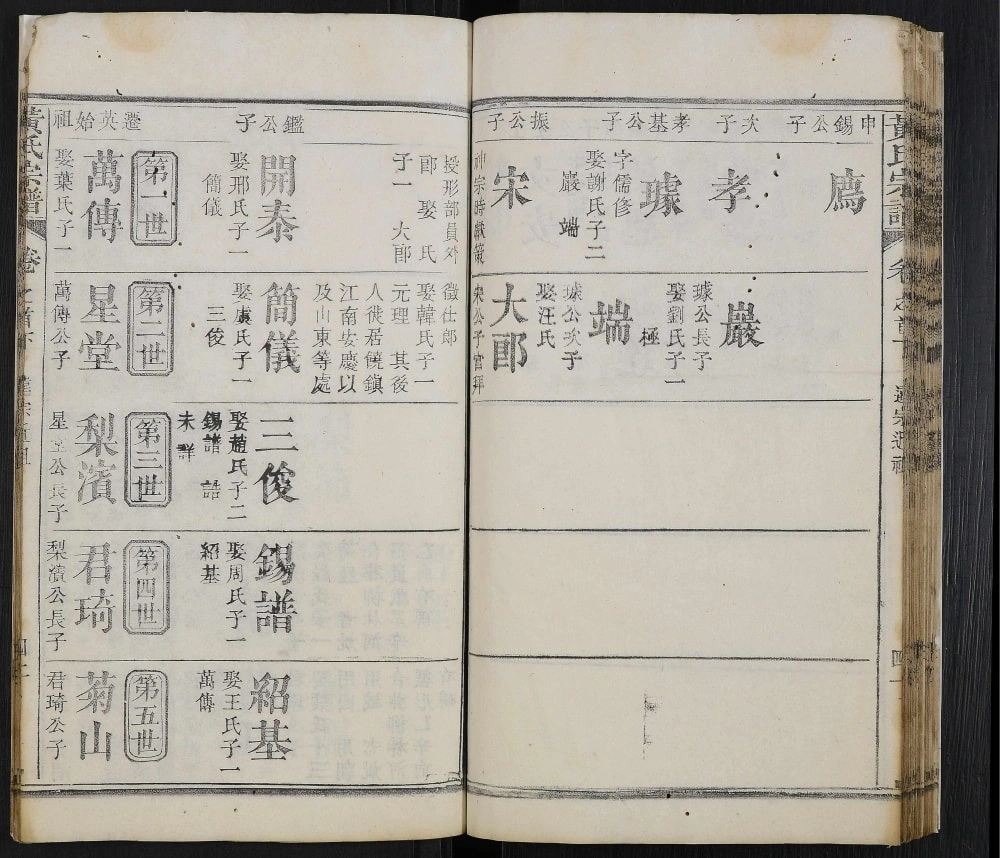 黃氏宗譜
卷之首下
遷宗遷祖
四一
申錫公子
廌
次子
孝
孝基公子
璩
字儒修
娶謝氏子二
巖 端
振公子
宋
神宗時獻策
巖
璩公長子
娶劉氏子一
極
端
璩公次子
娶汪氏
大郎
宋公子官拜
授形部員外
郎 娶 氏
子一 大郎
徵仕郎
娶韓氏子一
元理 其後
人徙居饒鎮
江南安慶以
及山東等處
鑑公子
開泰
娶邢氏子一
簡儀
簡儀
娶虞氏子一
三俊
三俊
娶趙氏子二
錫譜 誥
未詳
錫譜
娶周氏子一
紹基
紹基
娶王氏子一
萬傳
第一世
第二世
第三世
第四世
第五世
遷英始祖
萬傳
娶葉氏子一
星堂
萬傳公子
梨濱
星堂公長子
君琦
梨濱公長子
菊山
君琦公子
黃氏宗譜
卷之首下
四二